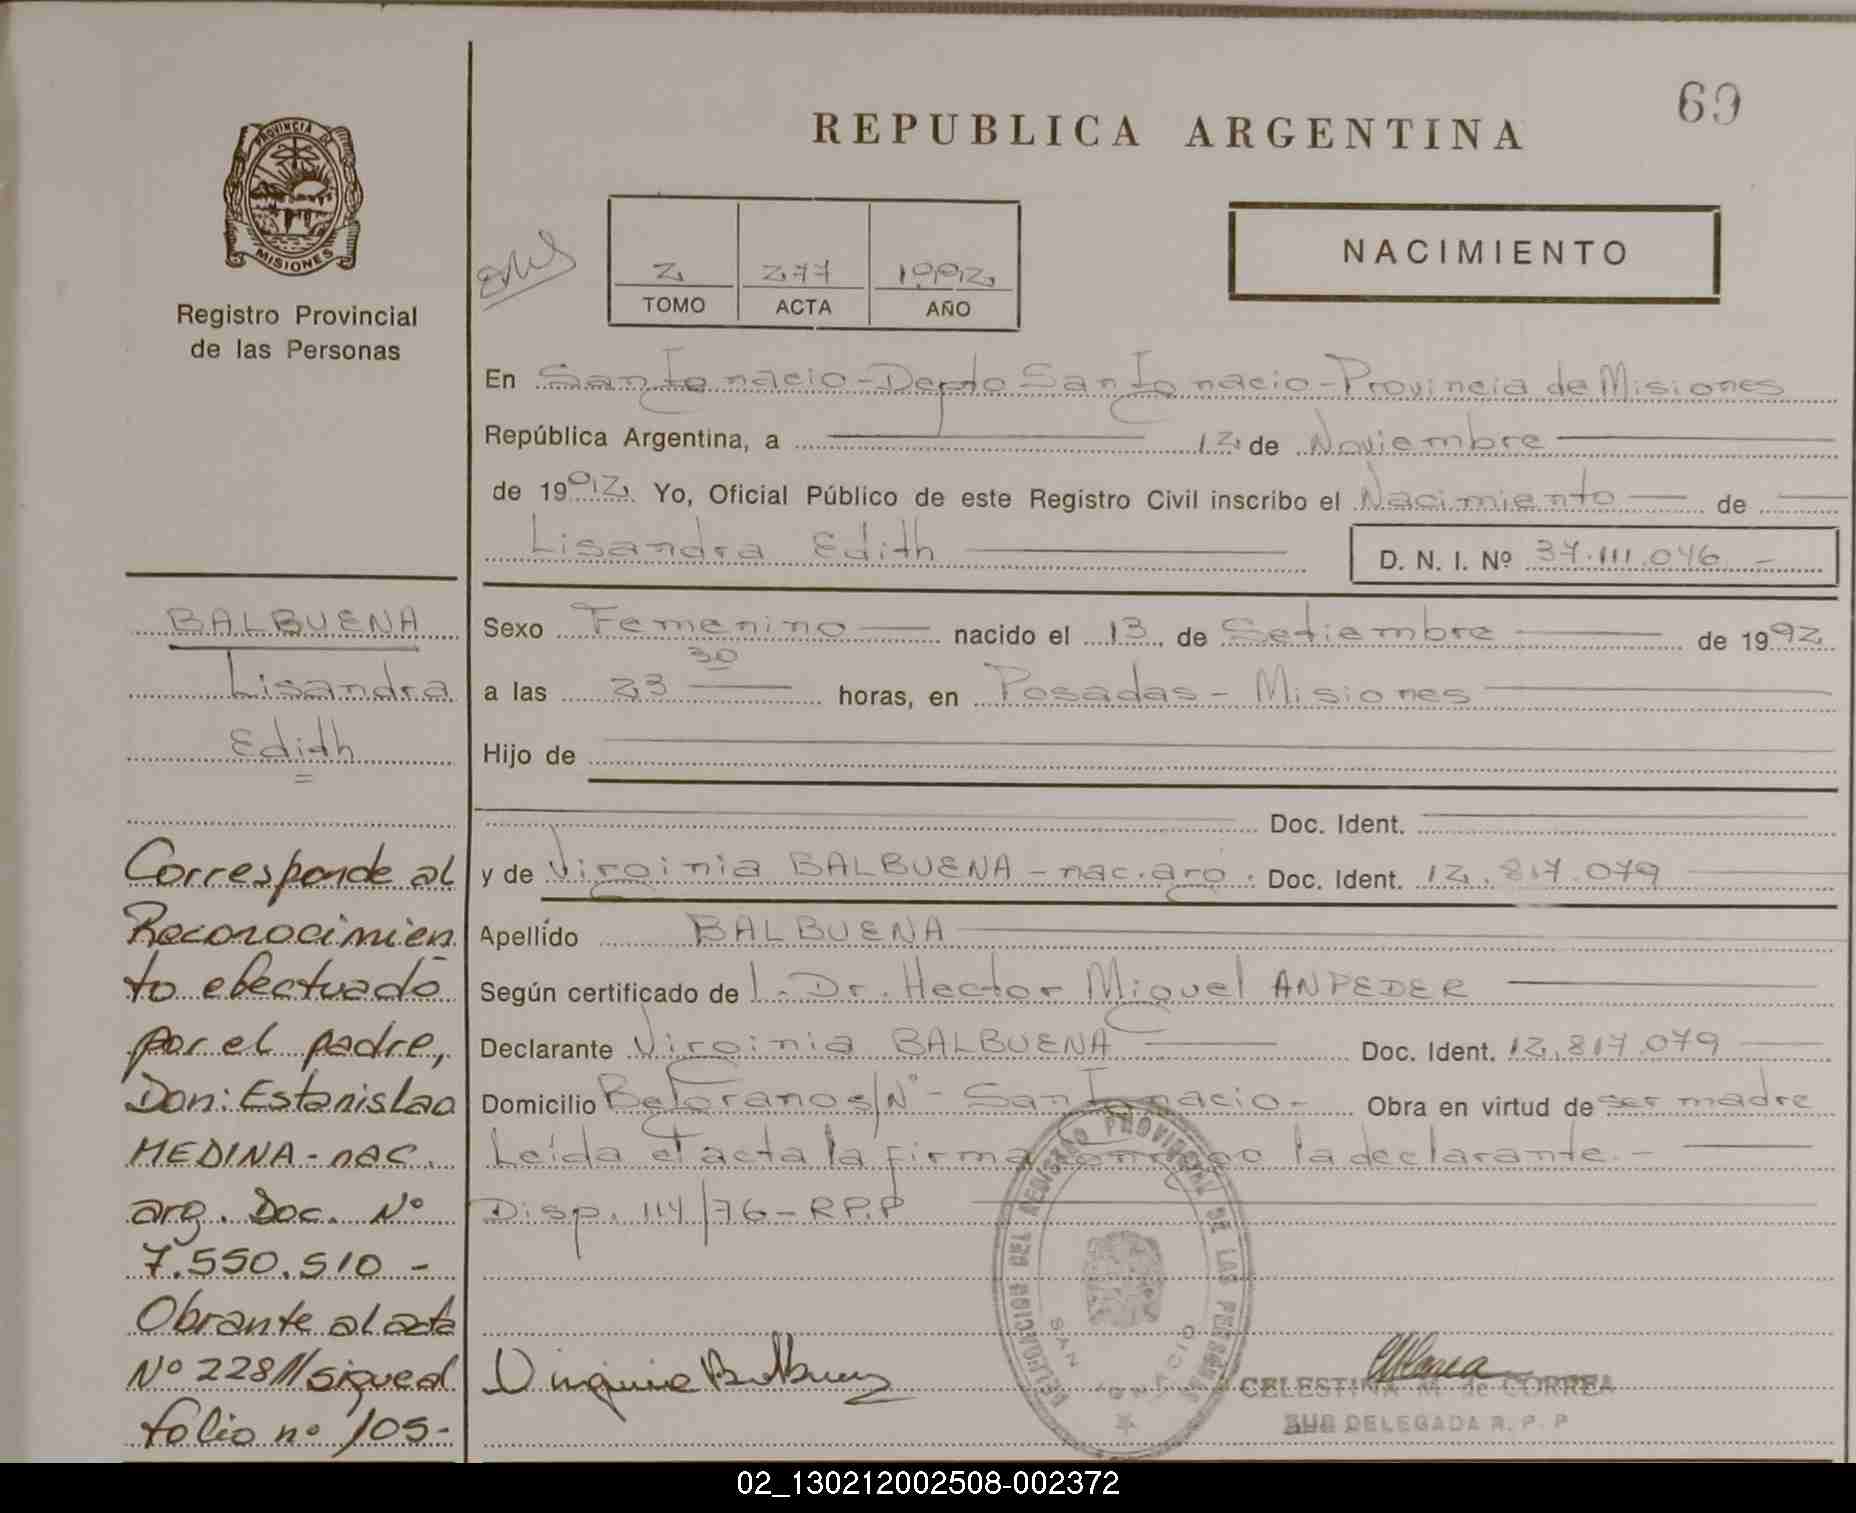 69
REPUBLICA ARGENTINA
PROVINCIA DE
MISIONES
Registro Provincial
de las Personas
2 277 1992
TOMO ACTA AÑO
NACIMIENTO
En San Ignacio - Depto San Ignacio - Provincia de Misiones
República Argentina, a 12 de Noviembre
de 1992 Yo, Oficial Público de este Registro Civil inscribo el Nacimiento de
Lisandra Edith D. N. I. Nº 37.111.046 -
Sexo Femenino nacido el 13 de Setiembre de 1992
a las 23 30 horas, en Posadas - Misiones
Hijo de
Doc. Ident.
y de Virginia BALBUENA - nac. arg. Doc. Ident. 12.817.079
Apellido BALBUENA
Según certificado de l. Dr. Hector Miguel ANPEDER
Declarante Virginia BALBUENA Doc. Ident. 12.817.079
Domicilio Belgrano s/Nº - San Ignacio - Obra en virtud de ser madre
Leída el acta la firma conmigo la declarante. -
Disp. 114/76 - R.P.P
BALBUENA
Lisandra
Edith
=
Corresponde al
Reconocimien
to efectuado
por el padre,
Don: Estanislao
MEDINA - nac.
arg. Doc. Nº
7.550.510 -
Obrante al acta
Nº 228 // sigue al
folio nº 105-
Virginia Balbuena
DELEGACION DEL REGISTRO PROVINCIAL DE LAS PERSONAS
SAN IGNACIO
CELESTINA M. de CORREA
SUB DELEGADA R. P. P
02_130212002508-002372